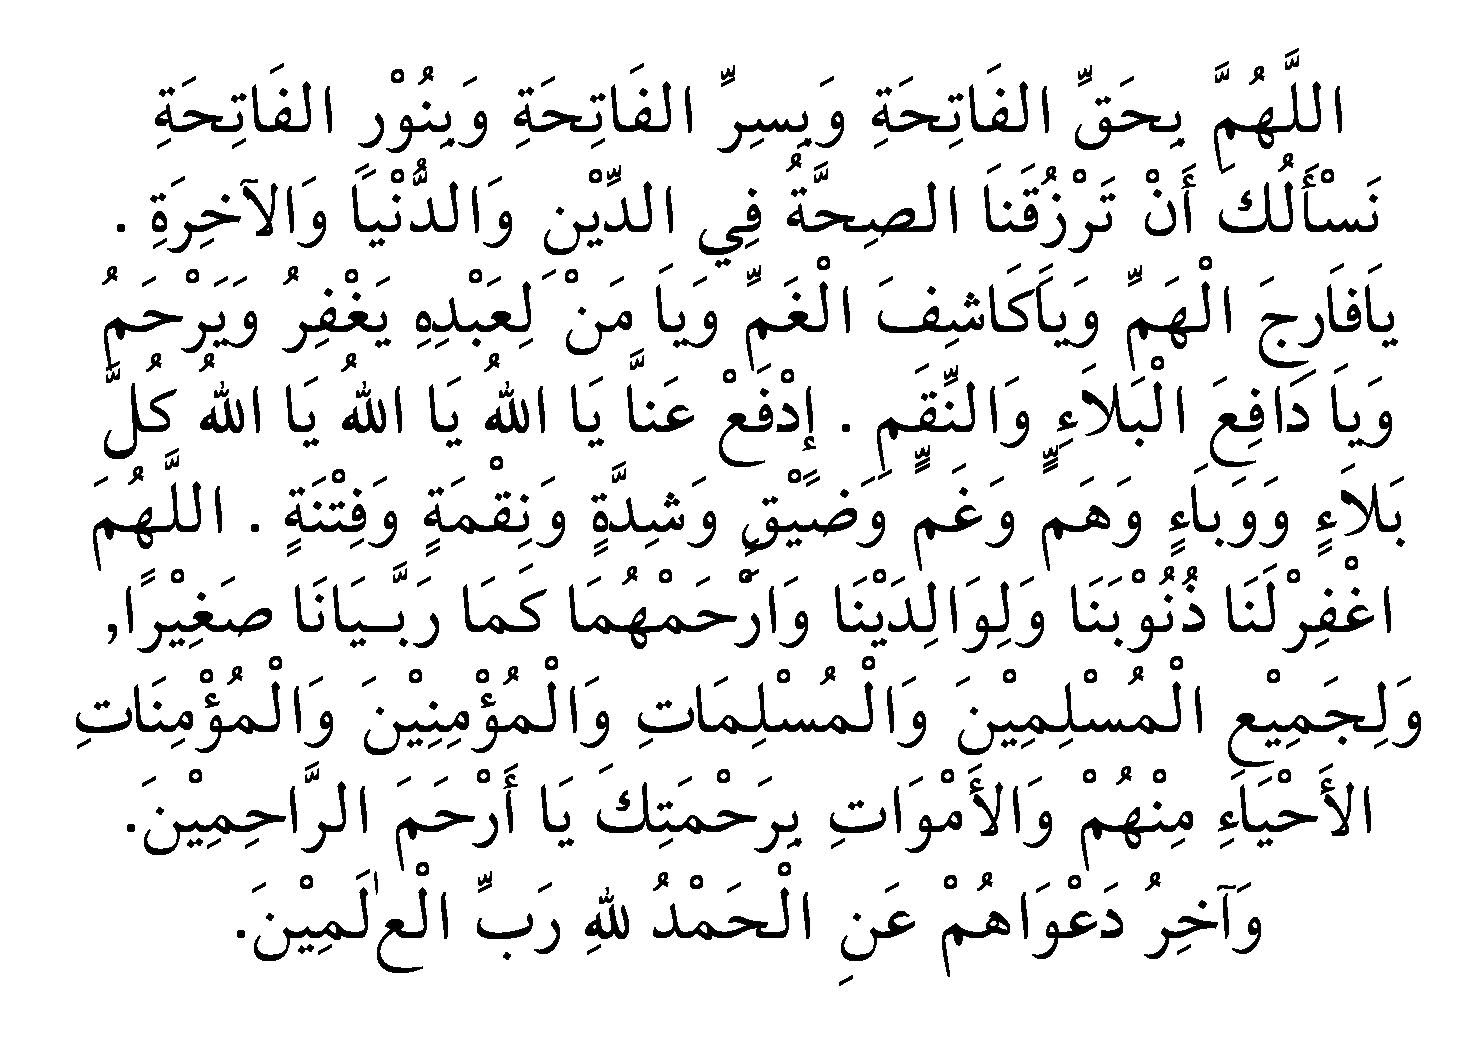 اللَّهُمَّ بِحَقِّ الفَاتِحَةِ وَبِسِرِّ الفَاتِحَةِ وَبِنُوْرِ الفَاتِحَةِ
نَسْأَلُكَ أَنْ تَرْزُقَنَا الصِحَّةُ فِي الدِّيْنِ وَالدُّنْيَا وَالآخِرَةِ .
يَافَارِجَ الْهَمِّ وَيَاكَاشِفَ الْغَمِّ وَيَا مَنْ لِعَبْدِهِ يَغْفِرُ وَيَرْحَمُ
وَيَا دَافِعَ الْبَلَاءِ وَالنِّقَمِ . إِدْفَعْ عَنَّا يَا اللهُ يَا اللهُ يَا اللهُ كُلَّ
بَلَاءٍ وَوَبَاءٍ وَهَمٍّ وَغَمٍّ وَضَيْقٍ وَشِدَّةٍ وَنِقْمَةٍ وَفِتْنَةٍ . اللَّهُمَ
اغْفِرْلَنَا ذُنُوْبَنَا وَلِوَالِدَيْنَا وَارْحَمْهُمَا كَمَا رَبَّــيَانَا صَغِيْرًا,
وَلِجَمِيْعِ الْمُسْلِمِيْنَ وَالْمُسْلِمَاتِ وَالْمُؤْمِنِيْنَ وَالْمُؤْمِنَاتِ
الأَحْيَاءِ مِنْهُمْ وَالأَمْوَاتِ بِرَحْمَتِكَ يَا أَرْحَمَ الرَّاحِمِيْنَ.
وَآخِرُ دَعْوَاهُمْ عَنِ الْحَمْدُ للهِ رَبِّ الْعٰلَمِيْنَ.